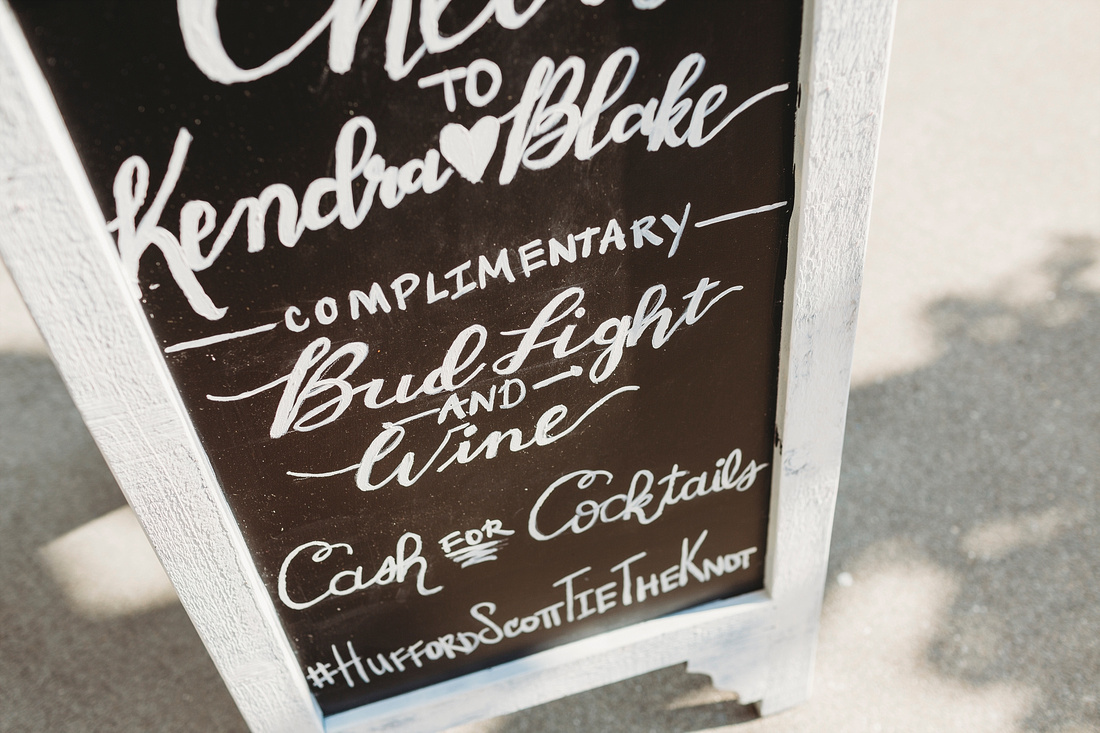 TO
Kendra♥Blake
COMPLIMENTARY
Bud Light
AND
Wine
Cash FOR Cocktails
#HUFFORDSCOTTTIETHEKNOT